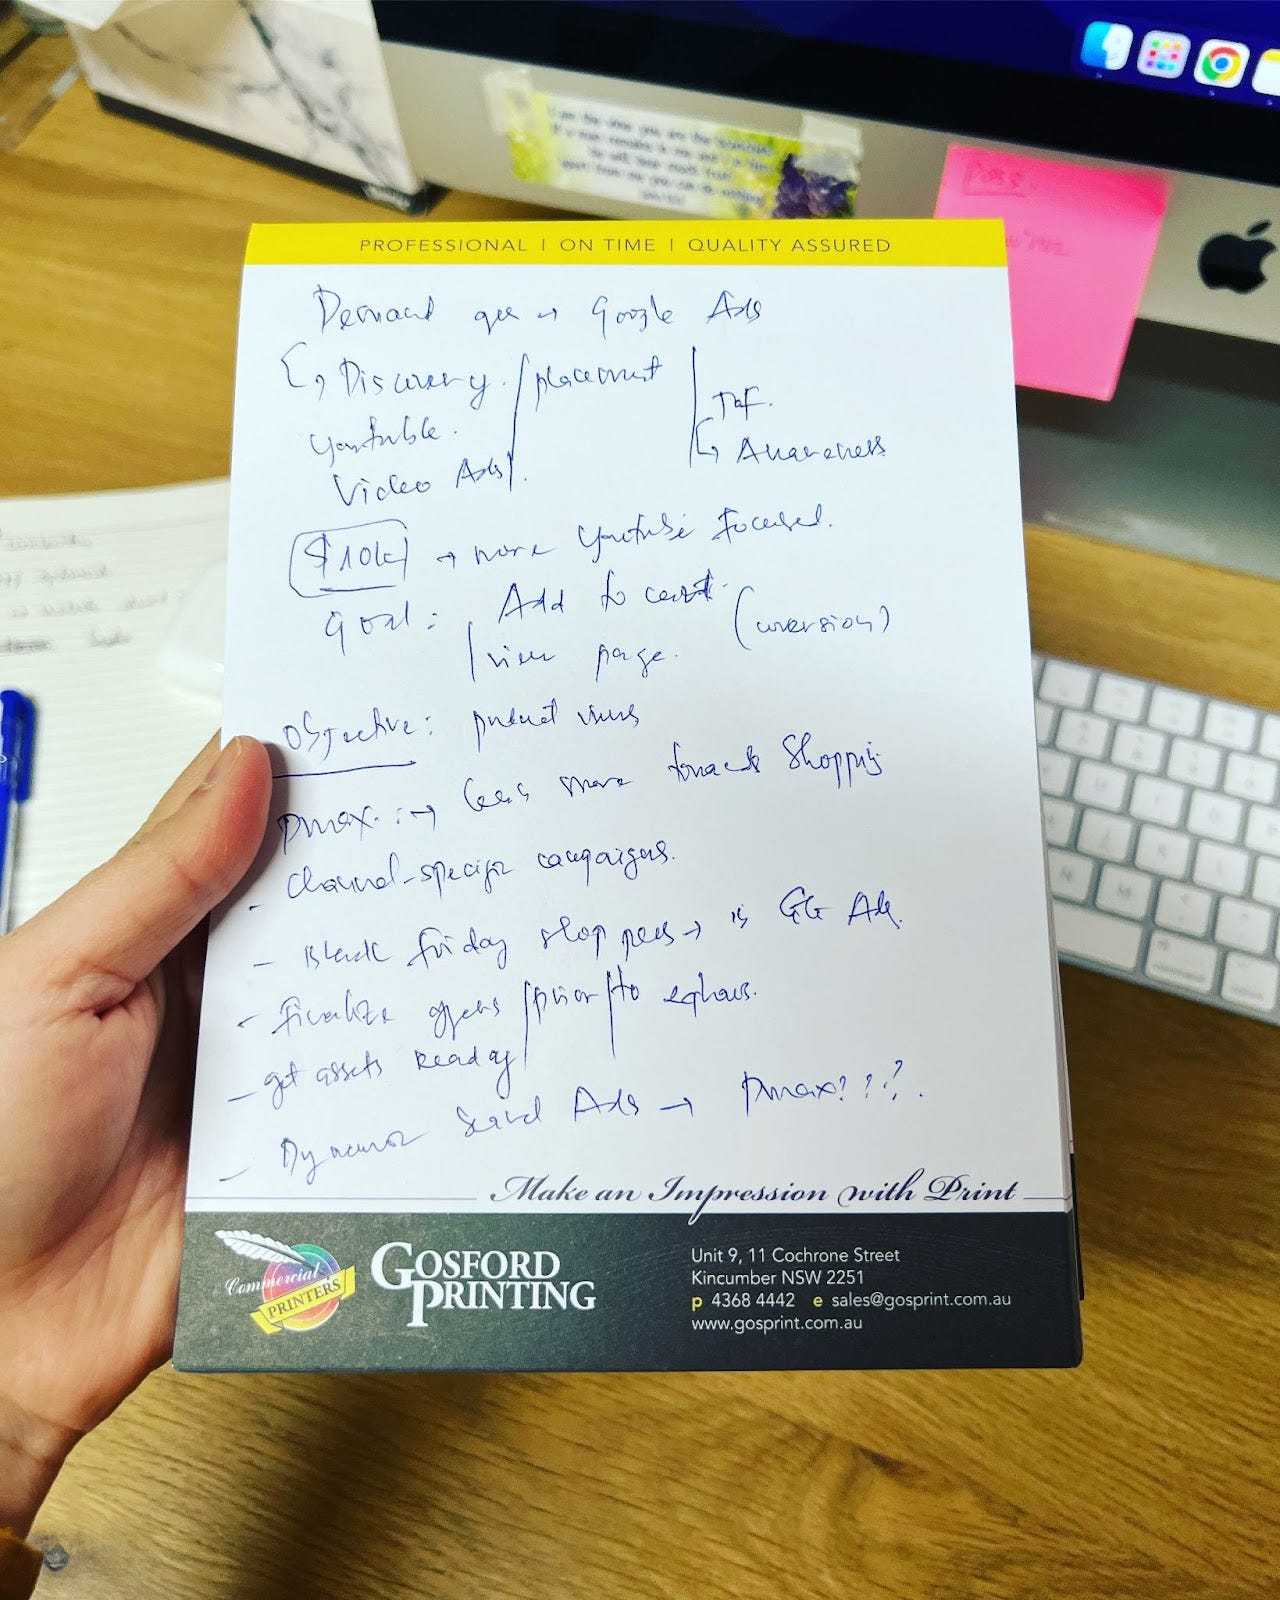 PROFESSIONAL | ON TIME | QUALITY ASSURED
Demand gen → Google Ads
↳ Discovery. / placement
ToF.
Youtube.
↳ Awareness
Video Ads
$10k → more Youtube focused.
Goal: Add to cart.
/ view page. (conversion)
Objective: product views
Pmax: → towards Shopping
- Channel-specific campaigns.
- Black friday shoppers → GG Ads.
- Finalize offers / prior to
- get assets ready
- Dynamic Ads → Pmax???.
Make an Impression with Print
Commercial
PRINTERS
GOSFORD
PRINTING
Unit 9, 11 Cochrone Street
Kincumber NSW 2251
p 4368 4442 e sales@gosprint.com.au
www.gosprint.com.au